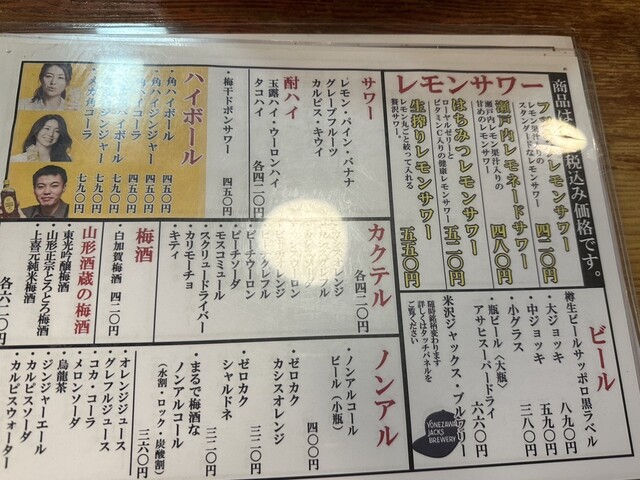 商品は
税込み価格です。
レモンサワー
レモンサワー 四二〇円
レモン果汁入りの
スタンダードなレモンサワー
瀬戸内レモネードサワー 四八〇円
瀬戸内レモン果汁入りの
甘めのレモンサワー
はちみつレモンサワー 五二〇円
ローヤルゼリーと
ビタミンC入りの健康レモンサワー
生搾りレモンサワー 五五〇円
レモン丸ごと絞って入れる
贅沢サワー
サワー
レモン・パイン・バナナ
グレープフルーツ
カルピス・キウイ
酎ハイ
玉露ハイ・ウーロンハイ
タコハイ
各四二〇円
・梅干ドボンサワー 四五〇円
ハイボール
・角ハイボール 四五〇円
・角ハイジンジャー 四五〇円
角ハイコーラ 四五〇円
ハイボール 七九〇円
ジンジャー 七九〇円
メガ角コーラ 七九〇円
ビール
樽生ビールサッポロ黒ラベル
・大ジョッキ 八九〇円
・中ジョッキ 五九〇円
・小グラス 三八〇円
・瓶ビール(大瓶)
アサヒスーパードライ 六六〇円
米沢ジャックス・ブルワリー
随時銘柄変わります
詳しくはタッチパネルを
ご覧ください
YONEZAWA
JACKS
BREWERY
カクテル
各四二〇円
ピーチウーロン
ピーチソーダ
モスコミュール
スクリュードライバー
カリモーチョ
キティ
梅酒
・白加賀梅酒 四二〇円
山形酒蔵の梅酒
・東光吟醸梅酒
・山形正宗とろとろ梅酒
・上喜元純米梅酒
各六二〇円
ノンアル
・ノンアルコール
ビール(小瓶) 四〇〇円
・ゼロカク
カシスオレンジ 三二〇円
・ゼロカク
シャルドネ 三二〇円
・まるで梅酒な
ノンアルコール
(水割・ロック・炭酸割) 三六〇円
・オレンジジュース
・グレフルジュース
・コカ・コーラ
・メロンソーダ
・烏龍茶
・ジンジャーエール
・カルピスソーダ
・カルピスウォーター